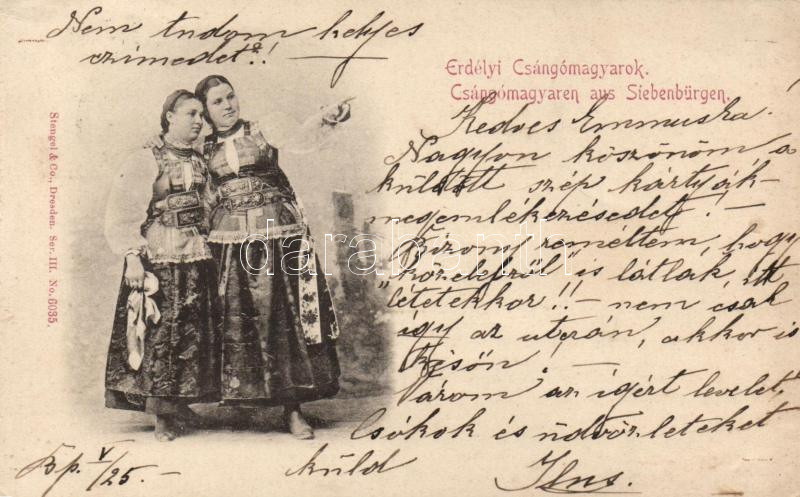 Nem tudom kegyes
czimedet!!
Erdélyi Csángómagyarok.
Csángómagyaren aus Siebenbürgen.
Stengel & Co., Dresden. Ser. III. No. 6035.
Kedves Emmuska!
Nagyon köszönöm a
küldött szép kártyák-
megemlékezésedet! –
Bizony reméltem, hogy
"közelebbről" is látlak, itt
létetekkor!! – nem csak
így az utczán, akkor is
későn. –
Várom az igért levelet.
Csókok és üdvözleteket
Bp. V/25. –
küld
darabanth